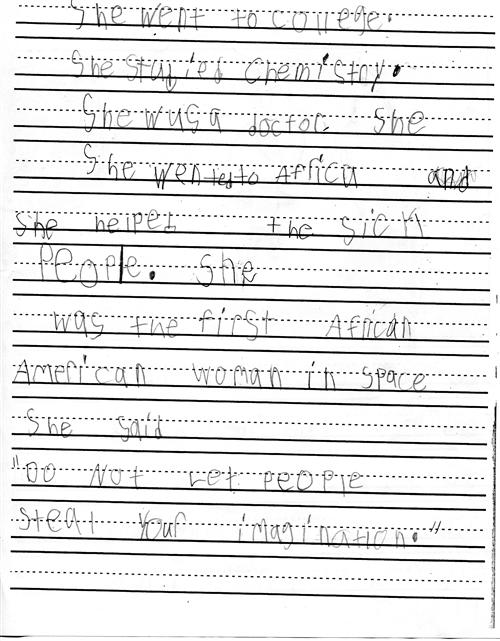 She went to college.
She studied Chemistry.
She wus a doctor. She
She wented to Africa and
she helped the sick
People. She
was the first African
American woman in space
She said
"Do Not Let people
steal your imagination."